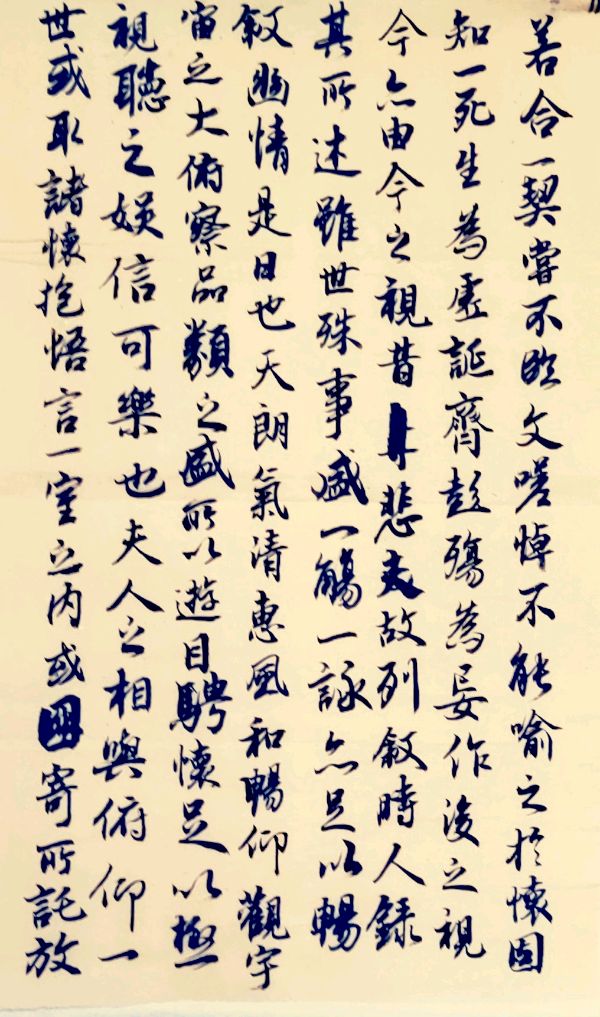 若合一契嘗不臨文嗟悼不能喻之於懷固
知一死生為虛誕齊彭殤為妄作後之視
今亦由今之視昔悲夫故列敘時人錄
其所述雖世殊事盛一觴一詠亦足以暢
敘幽情是日也天朗氣清惠風和暢仰觀宇
宙之大俯察品類之盛所以遊目騁懷足以極
視聽之娛信可樂也夫人之相與俯仰一
世或取諸懷抱悟言一室之內或因寄所託放